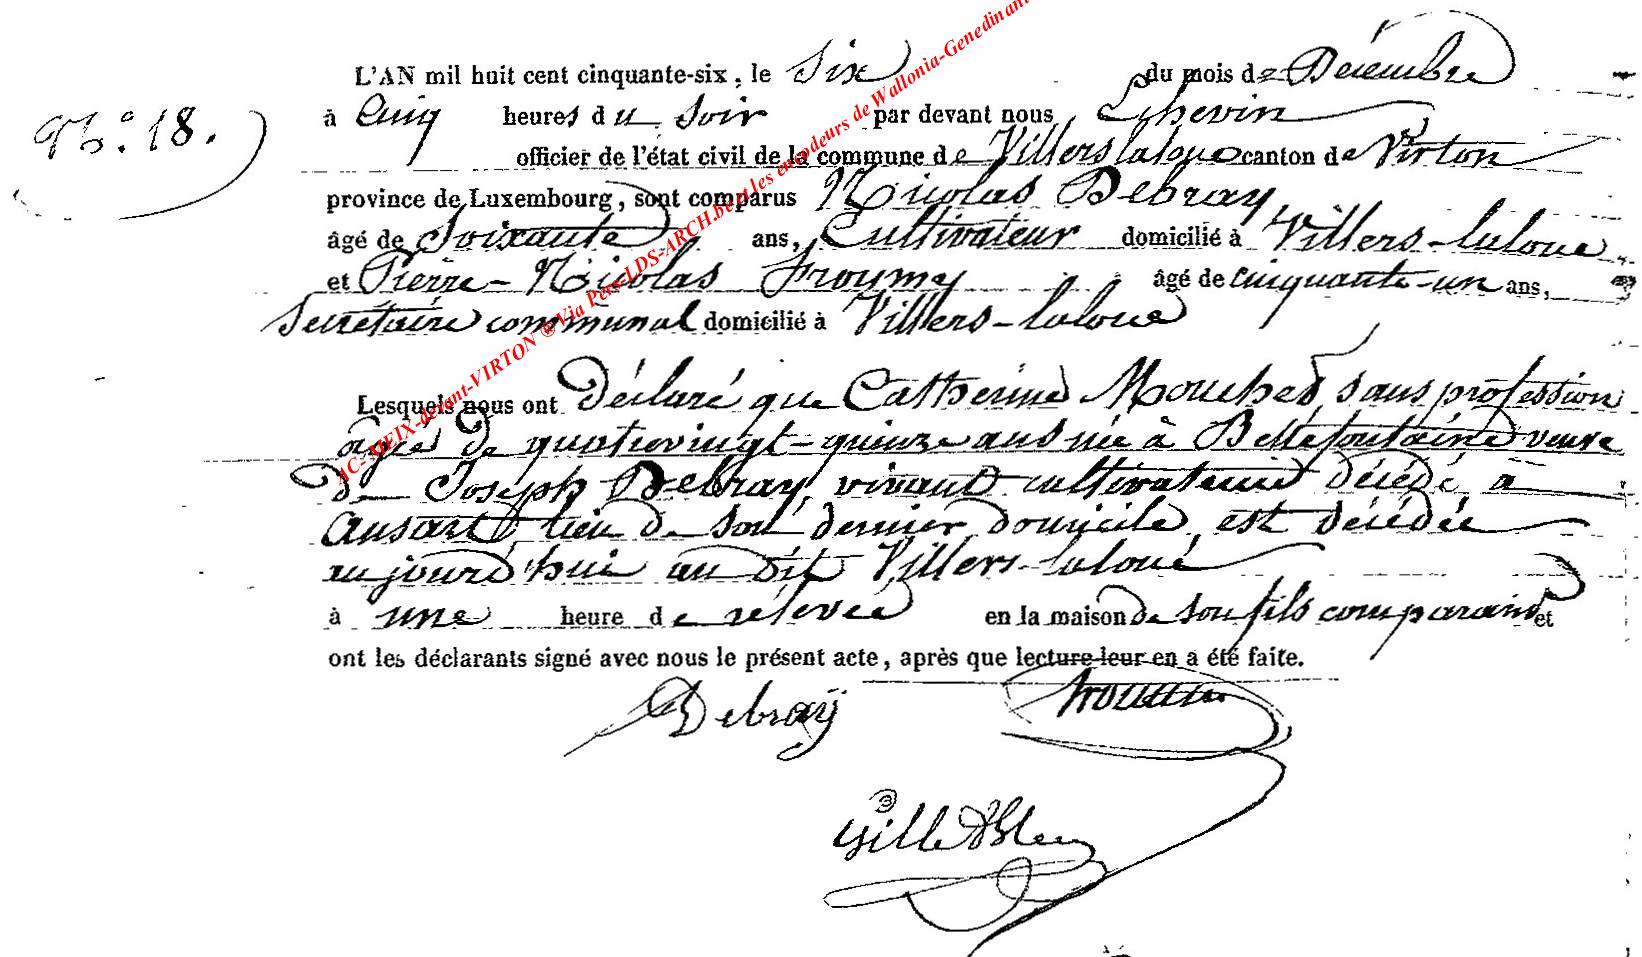 L'AN mil huit cent cinquante-six, le Six du mois de Décembre
N.° 18.
à Cinq heures du soir par devant nous Echevin
officier de l'état civil de la commune de Villers laloue canton de Virton
province de Luxembourg, sont comparus Nicolas Debray,
âgé de Soixante ans, Cultivateur domicilié à Villers-laloue
et Pierre-Nicolas Froumy âgé de cinquante-un ans,
Secrétaire communal domicilié à Villers-laloue
Lesquels nous ont Déclaré que Catherine Mouched sans profession
âgée de quatrevingt-quinze ans née à Bellefontaine veuve
de Joseph Debray, vivant cultivateur décédé à
Ansart lieu de son dernier domicile, est décédée
aujourd'hui au dit Villers-laloué
à une heure de relevée en la maison de son fils comparant et
ont les déclarants signé avec nous le présent acte, après que lecture leur en a été faite.
Debraÿ
Gille
AC-MEIX-devant-VIRTON ® Via Pers-LDS-ARCH.be et les encodeurs de Wallonia-Genedinant